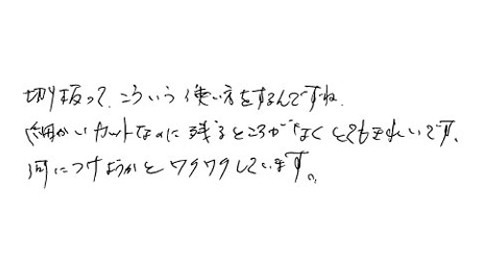 切り板って、こういう使い方をするんですね、
細かいカットなのに残るところがなくとてもきれいです、
何につけようかとワクワクしています。